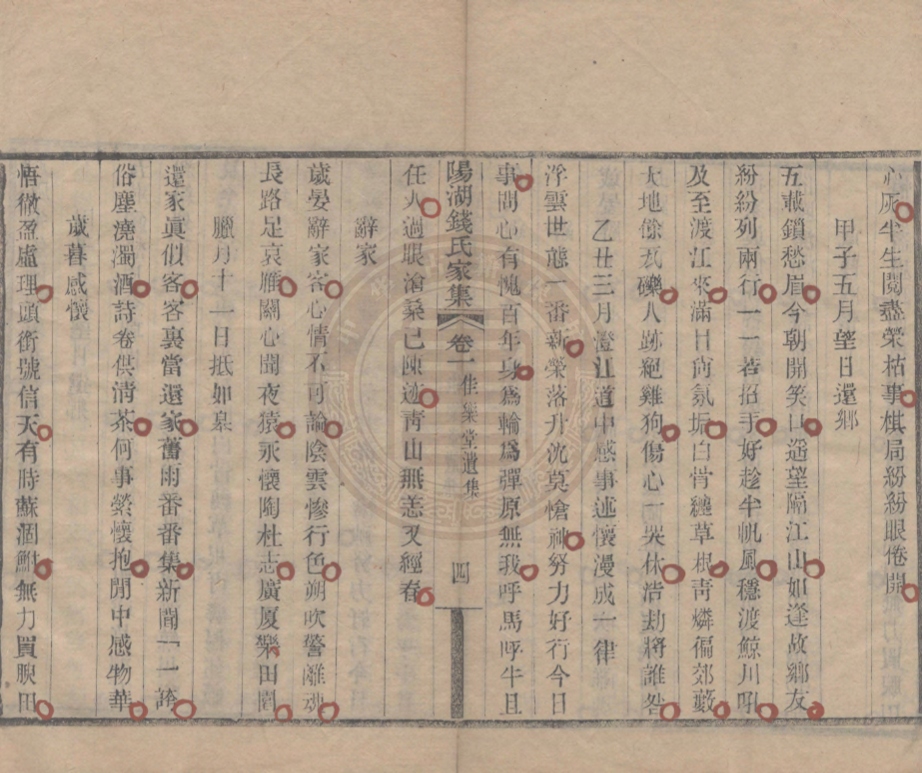 心灰半生閱盡榮枯事棋局紛紛眼倦開
甲子五月望日還鄉
五載鎖愁眉今朝開笑口遥望隔江山如逢故鄉友
紛紛列兩行一一若招手好趁半帆風穩渡鯨川吼
及至渡江來滿目尙氛垢白骨纏草根靑燐徧郊藪
大地餘瓦礫人跡絕雞狗傷心一哭休浩劫將誰咎
乙丑三月澄江道中感事述懷漫成一律
浮雲世態一番新榮落升沈莫愴神努力好行今日
事問心有愧百年身爲輪爲彈原無我呼馬呼牛且
任人過眼滄桑已陳迹靑山無恙又經春
陽湖錢氏家集
卷一隹樂堂遺集
四
辭家
歲晏辭家客心情不可論陰雲慘行色朔吹警離魂
長路足哀雁關心聞夜猿永懷陶杜志廣厦樂田園
臘月十一日抵如皋
還家眞似客客裏當還家舊雨番番集新聞一一誇
俗塵澆濁酒詩卷供淸茶何事縈懷抱閒中感物華
歲暮感懷
悟徹盈虛理頭銜號信天有時蘇涸鮒無力買腴田